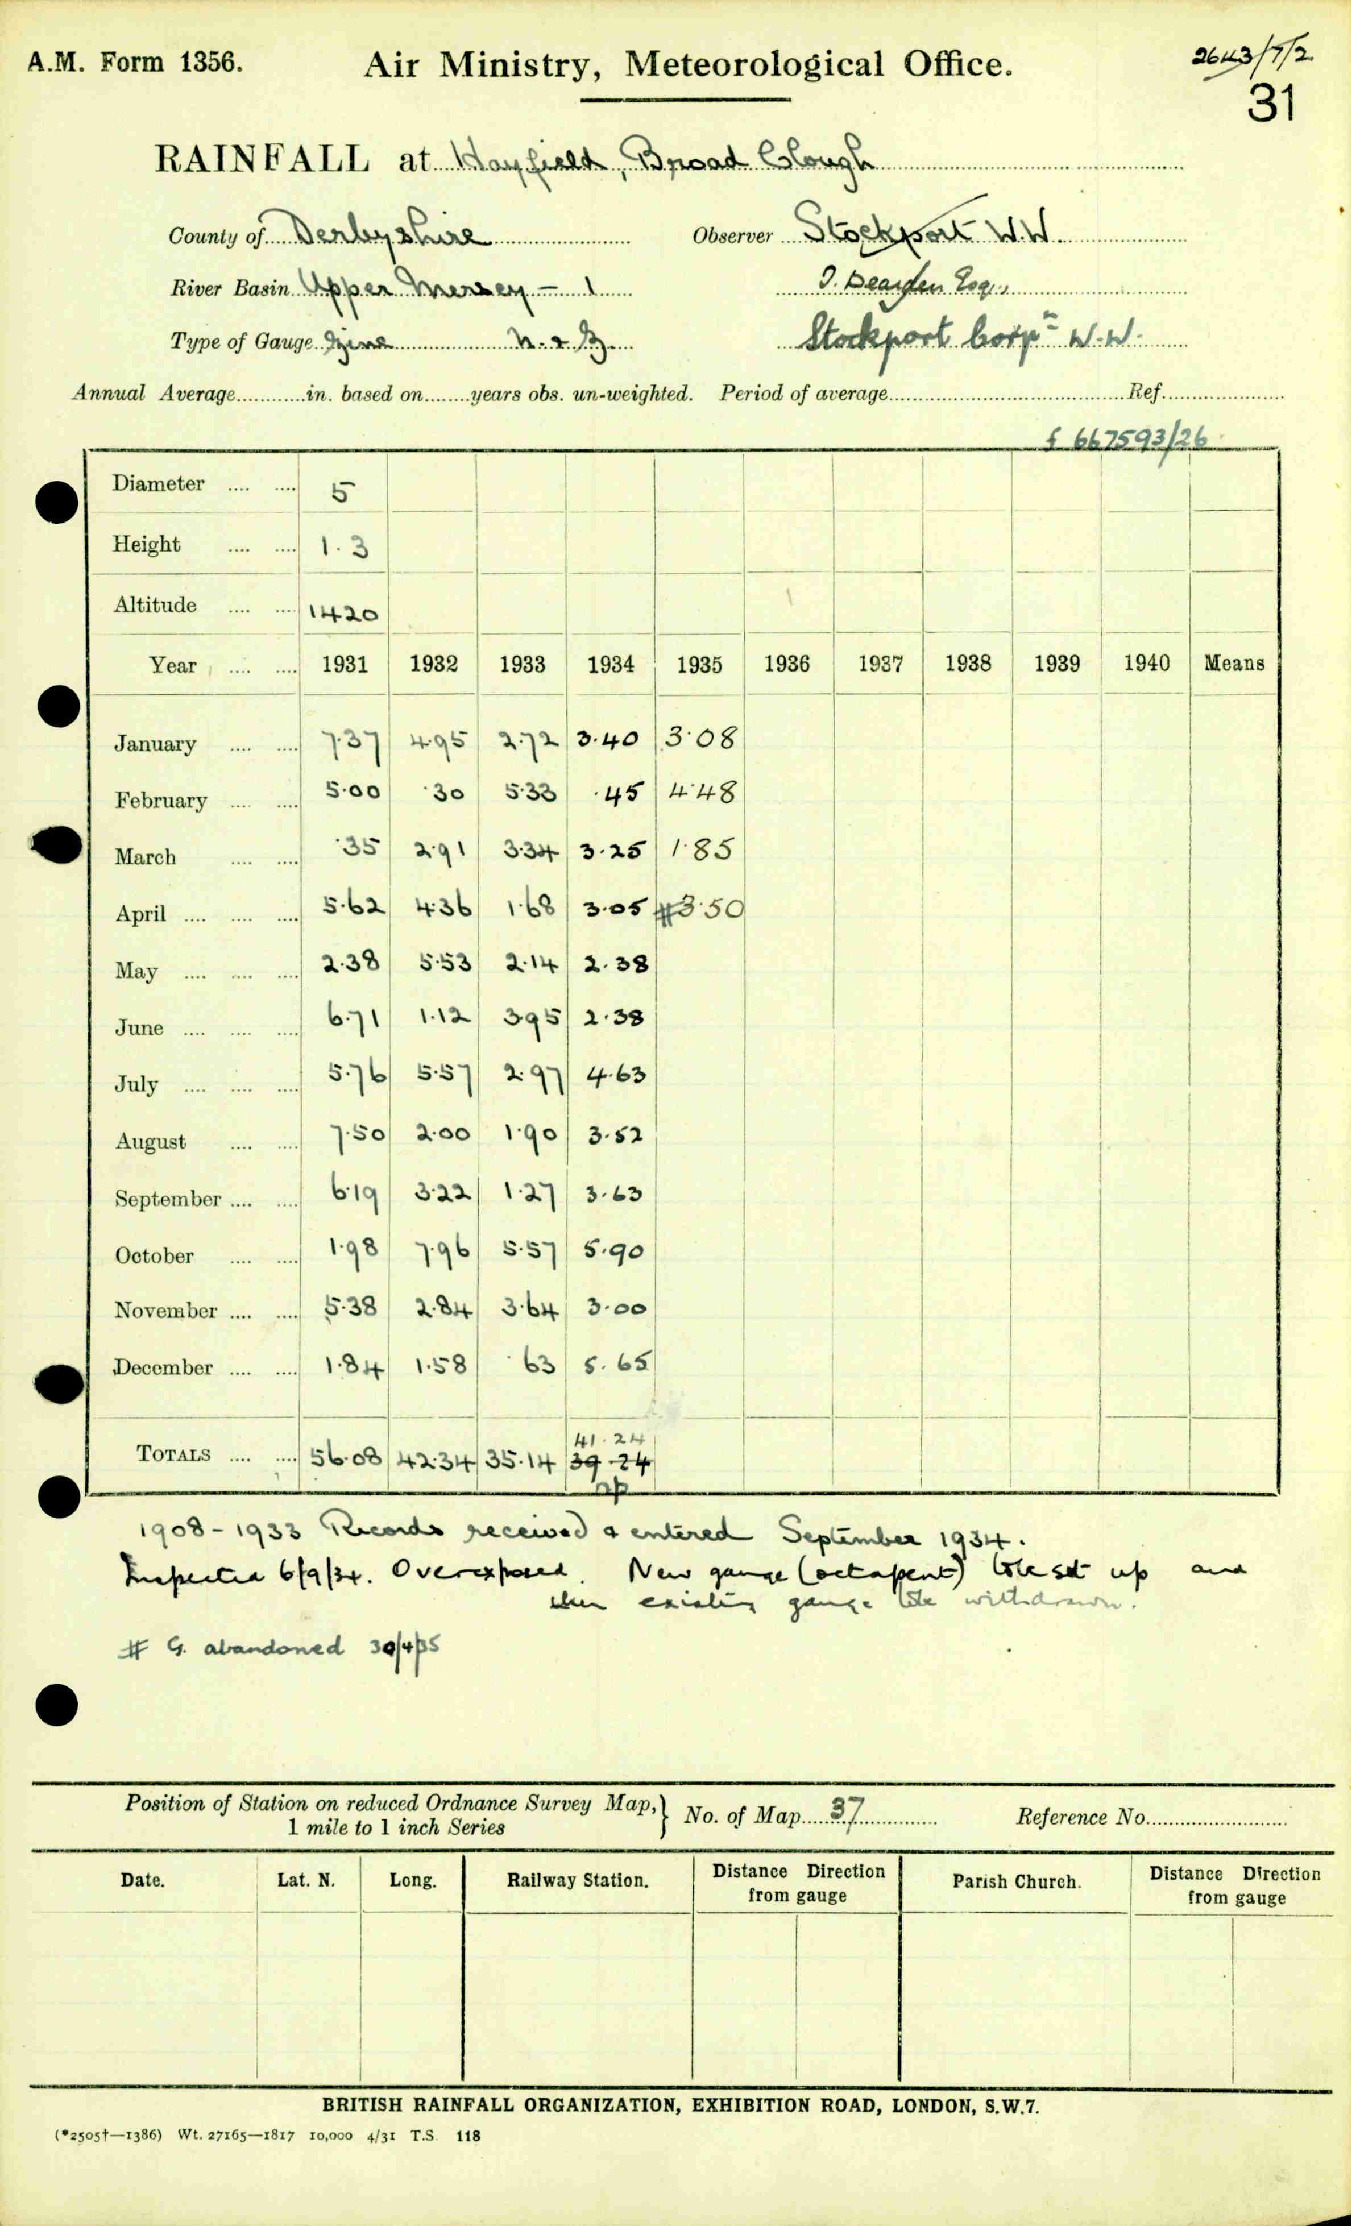 A.M. Form 1356. Air Ministry, Meteorological Office. 2643/7/2
31
RAINFALL at Hayfield, Broad Clough
County of Derbyshire Observer Stockport W.W.
River Basin Upper Mersey - 1 J. Dearden Esq.,
Type of Gauge Zinc N. & Z. Stockport Corpn W.W.
Annual Average in. based on years obs. un-weighted. Period of average Ref.
f 667593/26
Diameter 5
Height 1.3
Altitude 1420
Year 1931 1932 1933 1934 1935 1936 1937 1938 1939 1940 Means
January 7.37 4.95 2.72 3.40 3.08
February 5.00 .30 5.33 .45 4.48
March .35 2.91 3.34 3.25 1.85
April 5.62 4.36 1.68 3.05 #3.50
May 2.38 5.53 2.14 2.38
June 6.71 1.12 3.95 2.38
July 5.76 5.57 2.97 4.63
August 7.50 2.00 1.90 3.52
September 6.19 3.22 1.27 3.63
October 1.98 7.96 5.57 5.90
November 5.38 2.84 3.64 3.00
December 1.84 1.58 .63 5.65
41.24
TOTALS 56.08 42.34 35.14 39.24
1908-1933 Records received & entered September 1934.
Inspected 6/9/34. Overexposed. New gauge (octapent) to be set up and
then existing gauge to be withdrawn.
# G. abandoned 30/4/35
Position of Station on reduced Ordnance Survey Map, } No. of Map 37 Reference No.
1 mile to 1 inch Series
Date. Lat. N. Long. Railway Station. Distance Direction from gauge Parish Church. Distance Direction from gauge
BRITISH RAINFALL ORGANIZATION, EXHIBITION ROAD, LONDON, S.W.7.
(*2505†—1386) Wt. 27165—1817 10,000 4/31 T.S. 118